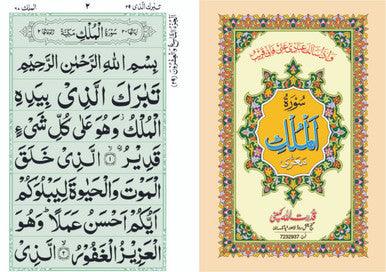 تبٰرك الذی ۲۹
۲
الملك ۶۷
سُوْرَةُ الْمُلْكِ مَكِّيَّةٌ
بِسْمِ اللّٰهِ الرَّحْمٰنِ الرَّحِيْمِ
تَبٰرَكَ الَّذِیْ بِيَدِهِ
الْمُلْكُ وَهُوَ عَلٰی كُلِّ شَیْءٍ
قَدِيْرُ ۙ ۱ الَّذِیْ خَلَقَ
الْمَوْتَ وَالْحَيٰوةَ لِيَبْلُوَكُمْ
اَيُّكُمْ اَحْسَنُ عَمَلًا ؕ وَهُوَ
الْعَزِيْزُ الْغَفُوْرُ ۙ ۲ الَّذِیْ
سُوْرَةُ
اَلْمُلْكِ
قدرت اللہ کمپنی
7232937